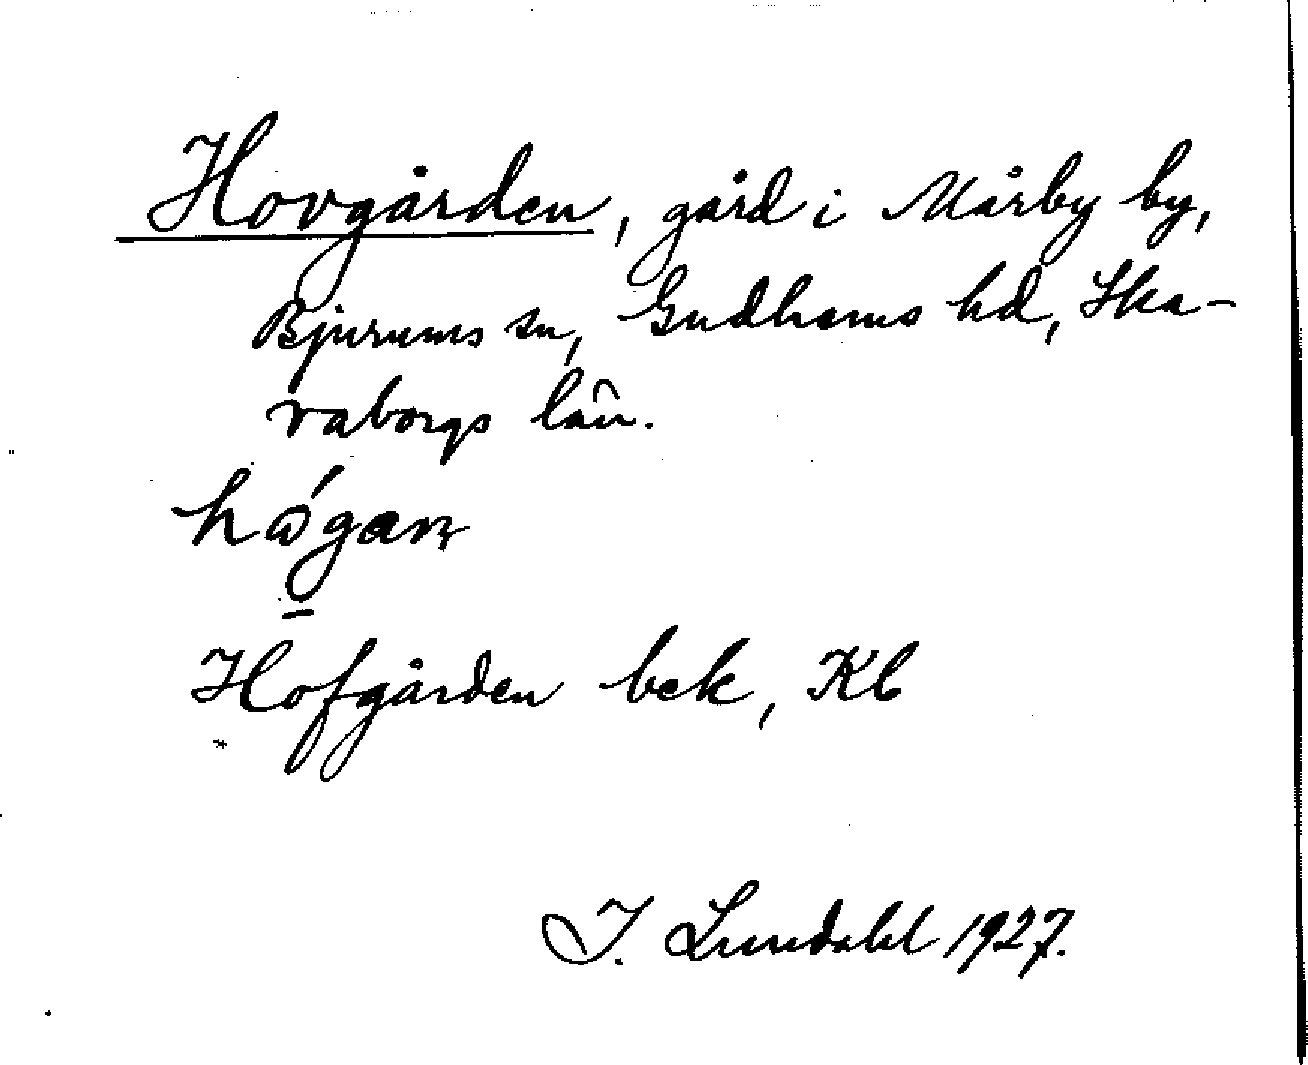 Hovgården, gård i Mårby by,
Bjurums sn, Gudhems hd, Ska-
raborgs län.
Hofgården bek, Kb
I. Lundahl 1927.